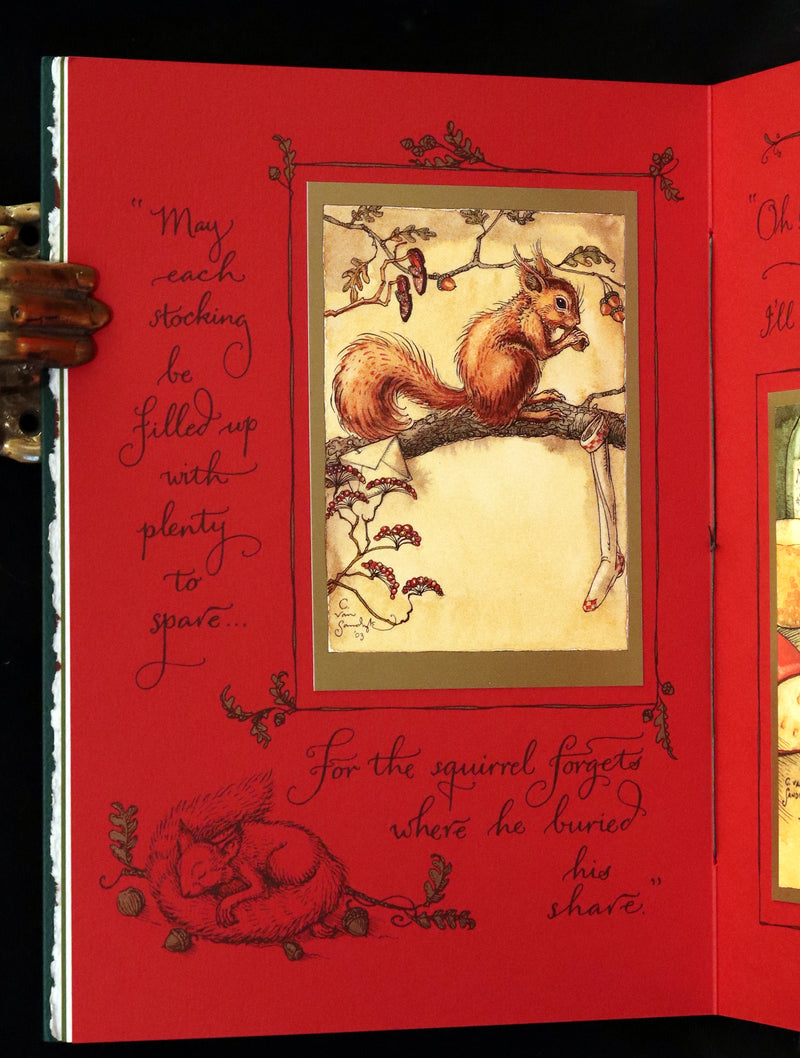 "May
each
stocking
be
filled up
with
plenty
to
spare...
C.
van
Sandyk
'03
For the squirrel forgets
where he buried
his
share."
"Oh
I'll
C. VA
SANDY